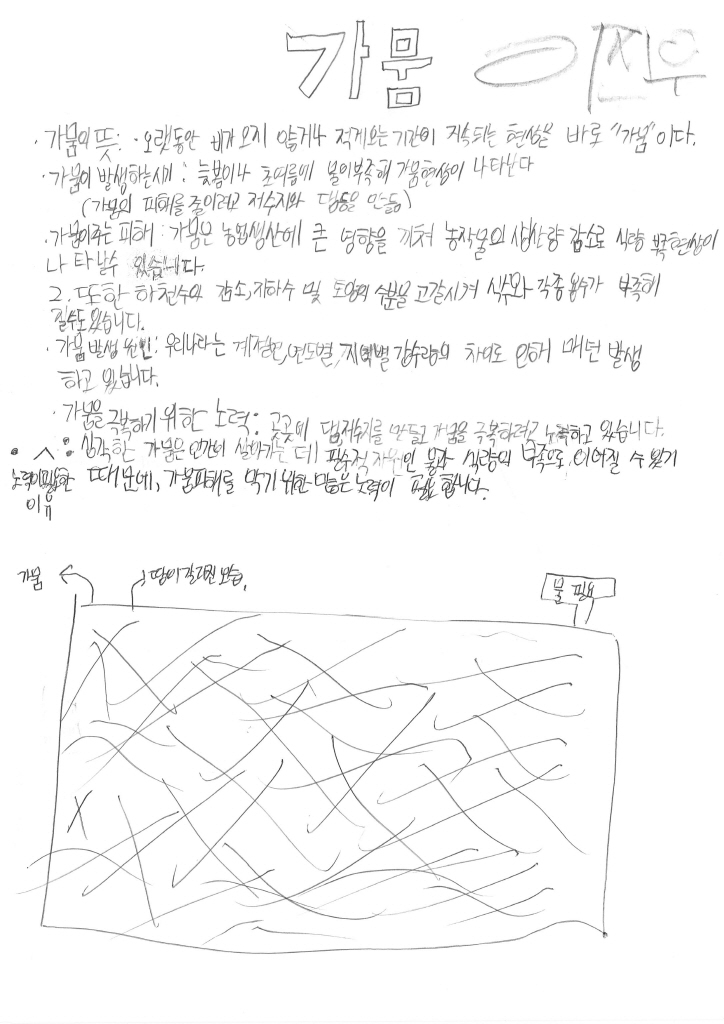 가뭄 이진우
· 가뭄의 뜻: · 오랫동안 비가 오지 않거나 적게오는 기간이 지속되는 현상을 바로 "가뭄"이다.
· 가뭄이 발생하는시기 : 늦봄이나 초여름에 물이부족해 가뭄현상이 나타난다
(가뭄의 피해를 줄이려고 저수지와 댐등을 만듦)
· 가뭄이주는 피해 : 가뭄은 농업생산에 큰 영향을 끼쳐 농작물의 생산량 감소로 식량 부족현상이
나타날수 있습니다.
2. 또한 하천수의 감소, 지하수 및 토양의 수분을 고갈시켜 식수와 각종 용수가 부족해
질수도있습니다.
· 가뭄 발생 원인: 우리나라는 계절별, 연도별, 지역별 강수량의 차이로 인해 매년 발생
하고 있습니다.
· 가뭄을 극복하기 위한 노력: 곳곳에 댐,저수지를 만들고 가뭄을 극복하려고 노력하고 있습니다.
· 심각한 가뭄은 인간이 살아가는 데 필수적 자원인 물과 식량의 부족으로 이어질 수 있기
노력이필요한 때문에, 가뭄피해를 막기 위한 많은 노력이 필요합니다.
이유
가뭄 땅이 갈라진 모습. 물 필요